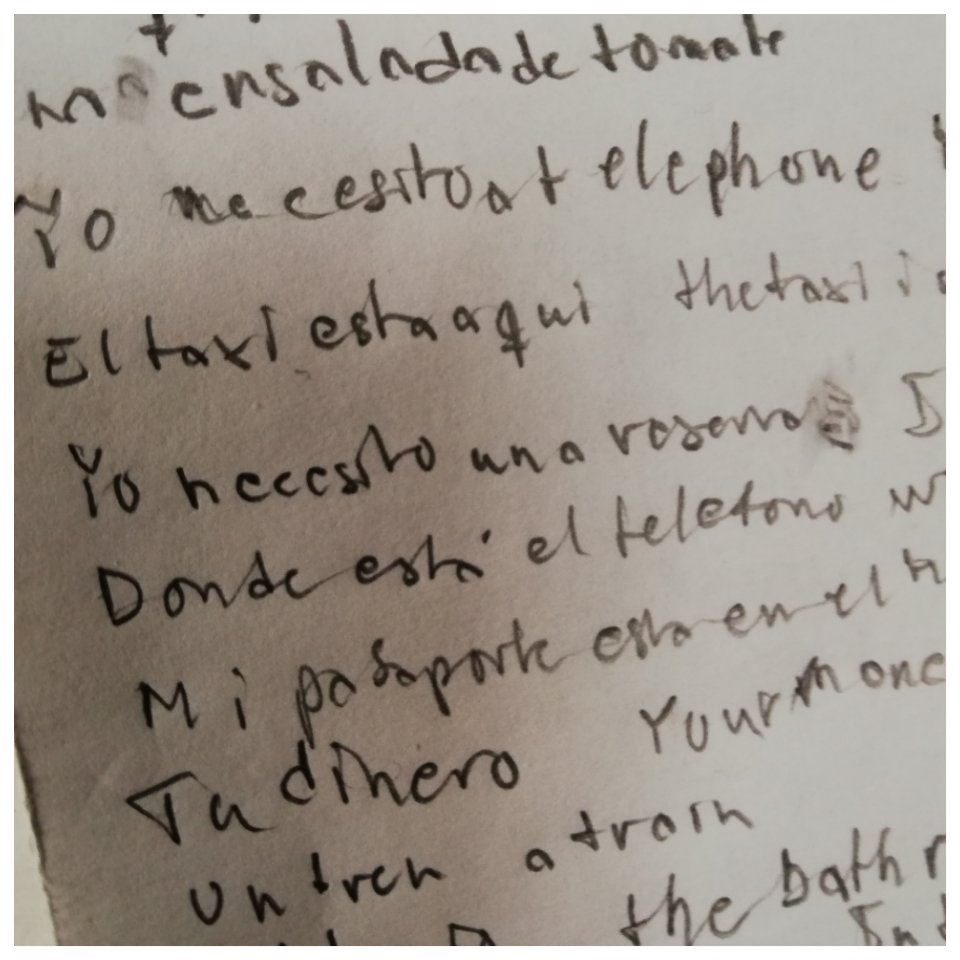 ensalada de tomate
Yo necesito a telephone
El taxi esta aqui the taxi
Yo necesito una reserva
Donde está el telefono
Mi pasaporte esta en el
Tu dinero Your mone
Un tren a train
the bath r